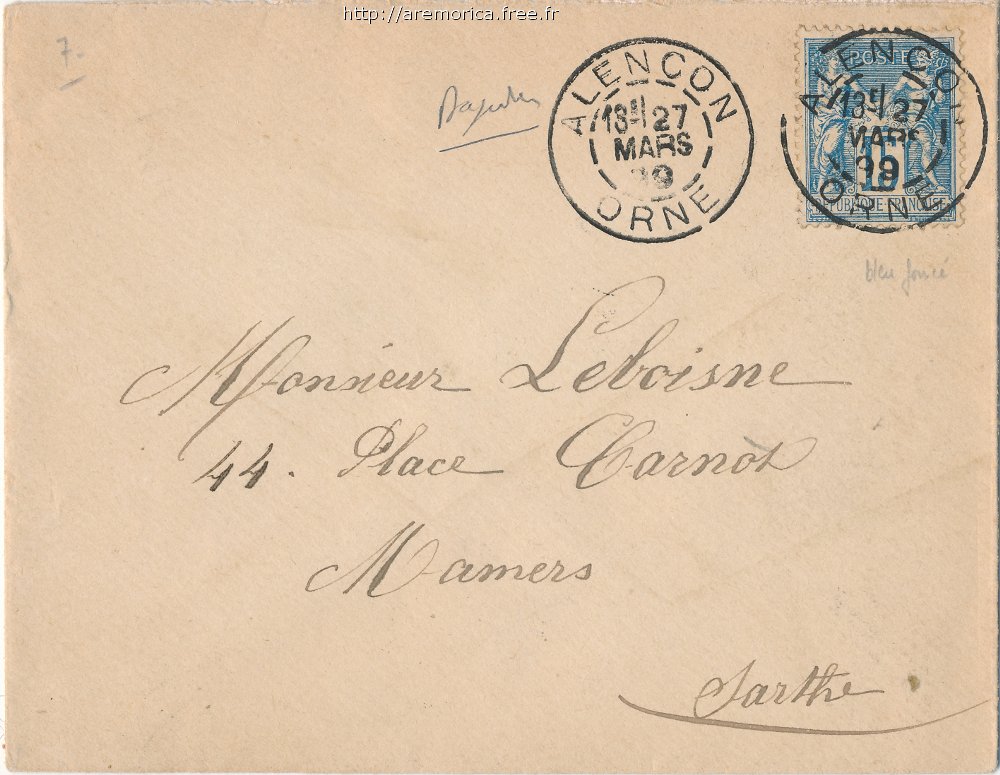 http://aremorica.free.fr
7-
ALENCON
18E 27
MARS
99
ORNE
POSTES
ALENCON
18E 27
MARS
99
ORNE
15
REPUBLIQUE FRANCAISE
bleu foncé
Monsieur Leboisne
44. Place Carnot
Mamers
Sarthe